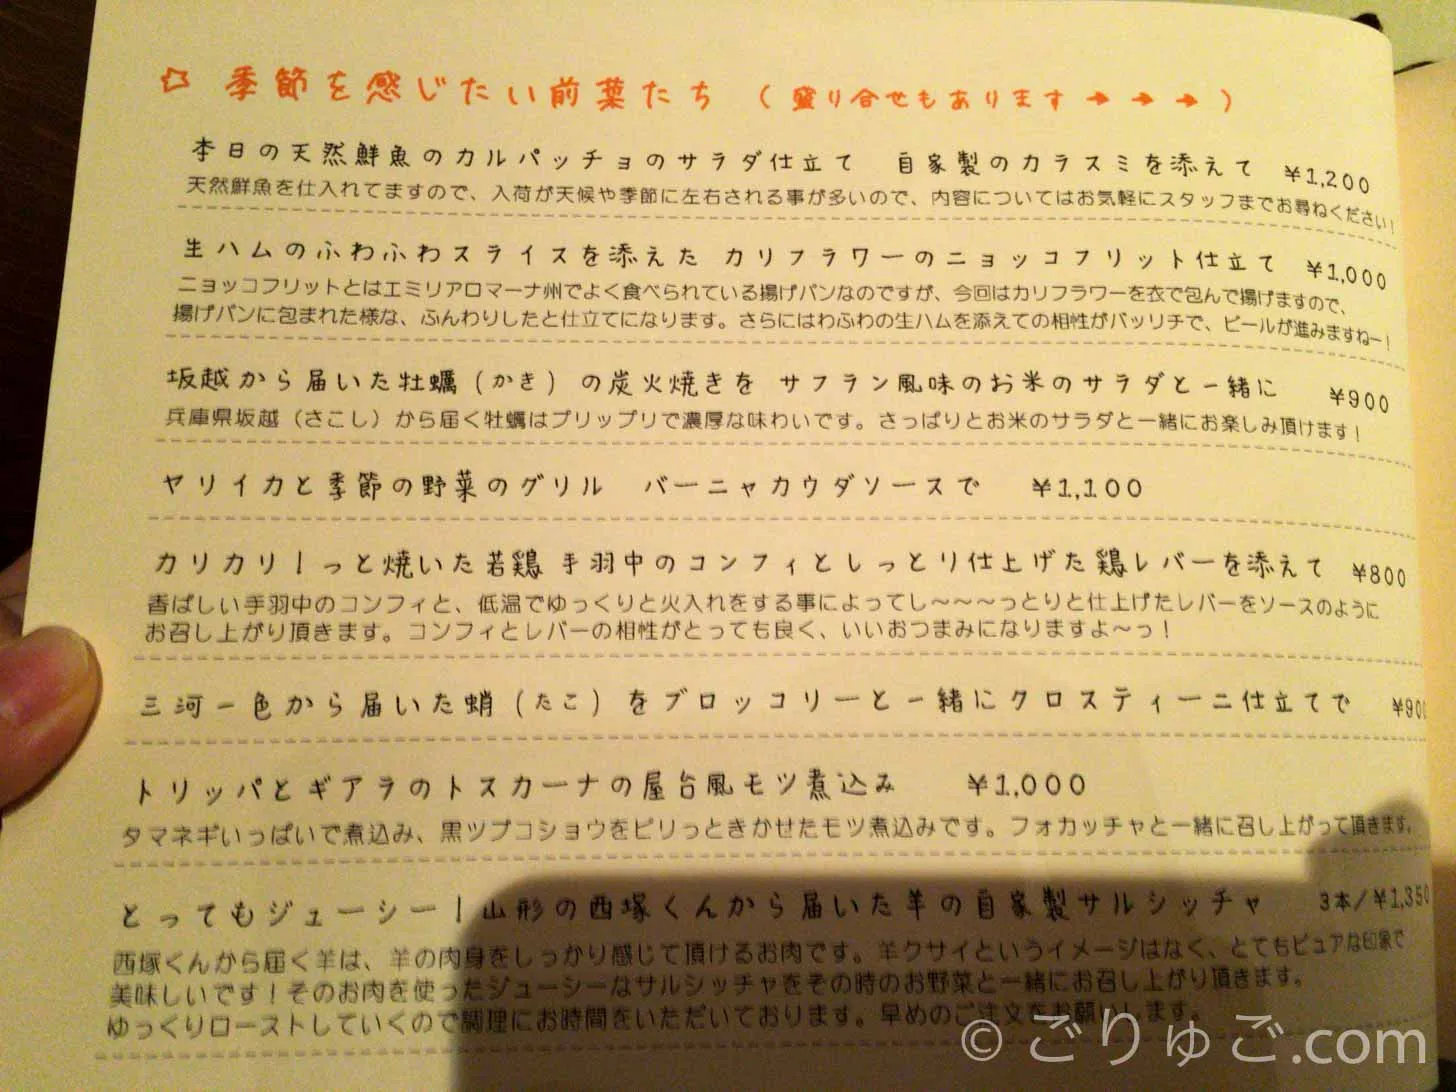 ☆ 季節を感じたい前菜たち （盛り合せもあります→→→）
本日の天然鮮魚のカルパッチョのサラダ仕立て 自家製のカラスミを添えて ¥1,200
天然鮮魚を仕入れてますので、入荷が天候や季節に左右される事が多いので、内容についてはお気軽にスタッフまでお尋ねください！
生ハムのふわふわスライスを添えた カリフラワーのニョッコフリット仕立て ¥1,000
ニョッコフリットとはエミリアロマーナ州でよく食べられている揚げパンなのですが、今回はカリフラワーを衣で包んで揚げますので、
揚げパンに包まれた様な、ふんわりしたと仕立てになります。さらにはわふわの生ハムを添えての相性がバッリチで、ビールが進みますねー！
坂越から届いた牡蠣（かき）の炭火焼きを サフラン風味のお米のサラダと一緒に ¥900
兵庫県坂越（さこし）から届く牡蠣はプリップリで濃厚な味わいです。さっぱりとお米のサラダと一緒にお楽しみ頂けます！
ヤリイカと季節の野菜のグリル バーニャカウダソースで ¥1,100
カリカリ！っと焼いた若鶏手羽中のコンフィとしっとり仕上げた鶏レバーを添えて ¥800
香ばしい手羽中のコンフィと、低温でゆっくりと火入れをする事によってし～～～っとりと仕上げたレバーをソースのように
お召し上がり頂きます。コンフィとレバーの相性がとっても良く、いいおつまみになりますよ～っ！
三河一色から届いた蛸（たこ）をブロッコリーと一緒にクロスティーニ仕立てで ¥900
トリッパとギアラのトスカーナの屋台風モツ煮込み ¥1,000
タマネギいっぱいで煮込み、黒ツブコショウをピリっときかせたモツ煮込みです。フォカッチャと一緒に召し上がって頂きます。
とってもジューシー！山形の西塚くんから届いた羊の自家製サルシッチャ 3本/¥1,350
西塚くんから届く羊は、羊の肉身をしっかり感じて頂けるお肉です。羊クサイというイメージはなく、とてもピュアな印象で
美味しいです！そのお肉を使ったジューシーなサルシッチャをその時のお野菜と一緒にお召し上がり頂きます。
ゆっくりローストしていくので調理にお時間をいただいております。早めのご注文をお願いします。
© ごりゅご.com